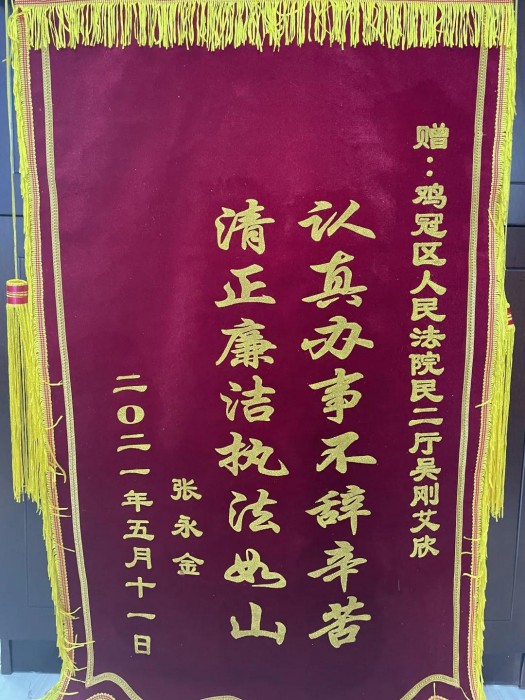 赠：鸡冠区人民法院民二厅吴刚艾欣
认真办事不辞辛苦
清正廉洁执法如山
张永金
二〇二一年五月十一日